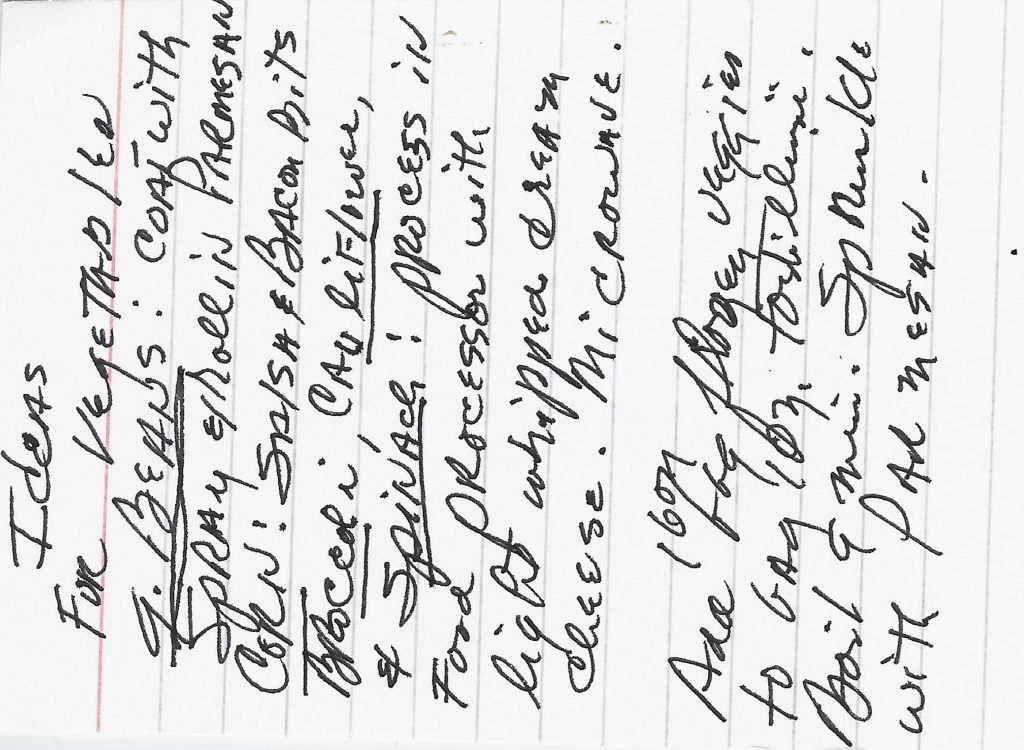 Ideas
For Vegetables
G. Beans: Coat with
Spray & roll in Parmesan
Corn: Salsa & Bacon Bits
Broccoli, Cauliflower,
& Spinach: process in
Food Processor with
light whipped cream
cheese. Microwave.
Add 16oz bag frozen veggies
to bag 9oz. tortellini.
Boil 9 min. Sprinkle
with Parmesan.